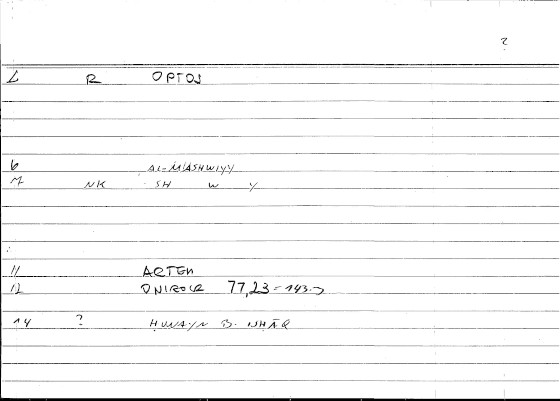 2
L R OPTOS
6 AL-MASHWIYY
7 NK SH W Y
11 ARTEM
12 ONIROCR 77,23 = 143.
14 ? ḤUNAYN B. ISḤĀQ